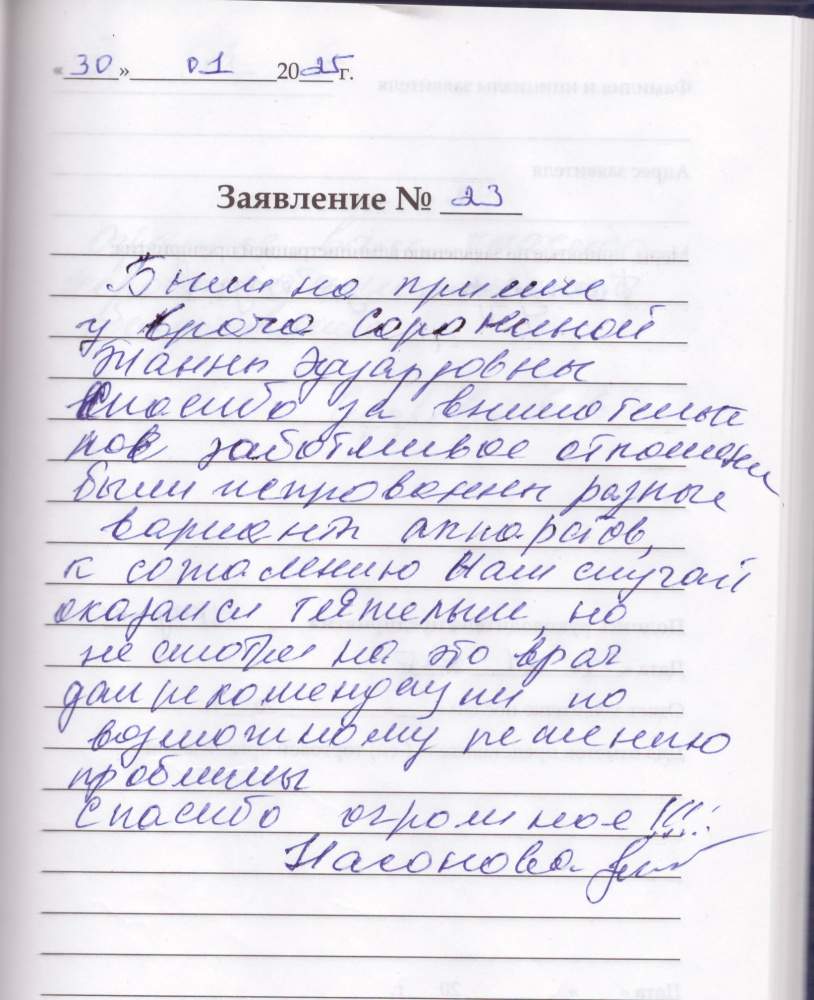 «30» 01 2025 г.
Заявление № 23
Были на приеме
у врача Сорокиной
Жанны Эдуардовны
Спасибо за внимательн
ное заботливое отношени
были испрованны разные
варианты аппаратов,
к сожалению наш случай
оказался тяжелым, но
не смотря на это врач
дал рекомендации по
возможному решению
проблемы
Спасибо огромное!!!!